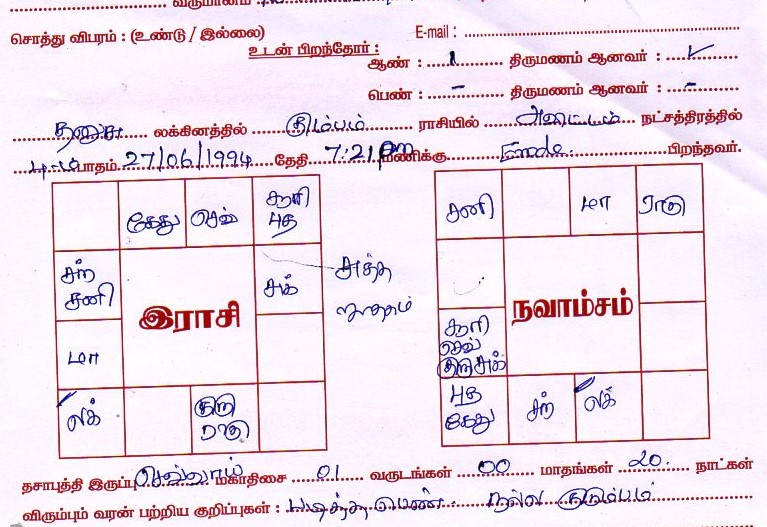 வருமானம் :
சொத்து விபரம் : (உண்டு / இல்லை) E-mail :
உடன் பிறந்தோர் :
ஆண் : 1 திருமணம் ஆனவர் : ✓
பெண் : - திருமணம் ஆனவர் : -
தனுசு லக்கினத்தில் கும்பம் ராசியில் அவிட்டம் நட்சத்திரத்தில்
4-ம் பாதம் 27/06/1994 தேதி 7:21 pm மணிக்கு Erode பிறந்தவர்.
கேது செவ் சூரி
புத
சந்
சனி
சுக்
மா
லக்
குரு
ராகு
இராசி
சனி மா ராகு
சூரி
செவ்
குரு சுக்
புத
கேது
சந் லக்
நவாம்சம்
தசாபுத்தி இருப்பு செவ்வாய் மகாதிசை 01 வருடங்கள் 00 மாதங்கள் 20 நாட்கள்
விரும்பும் வரன் பற்றிய குறிப்புகள் : படித்த பெண் நல்ல குடும்பம்